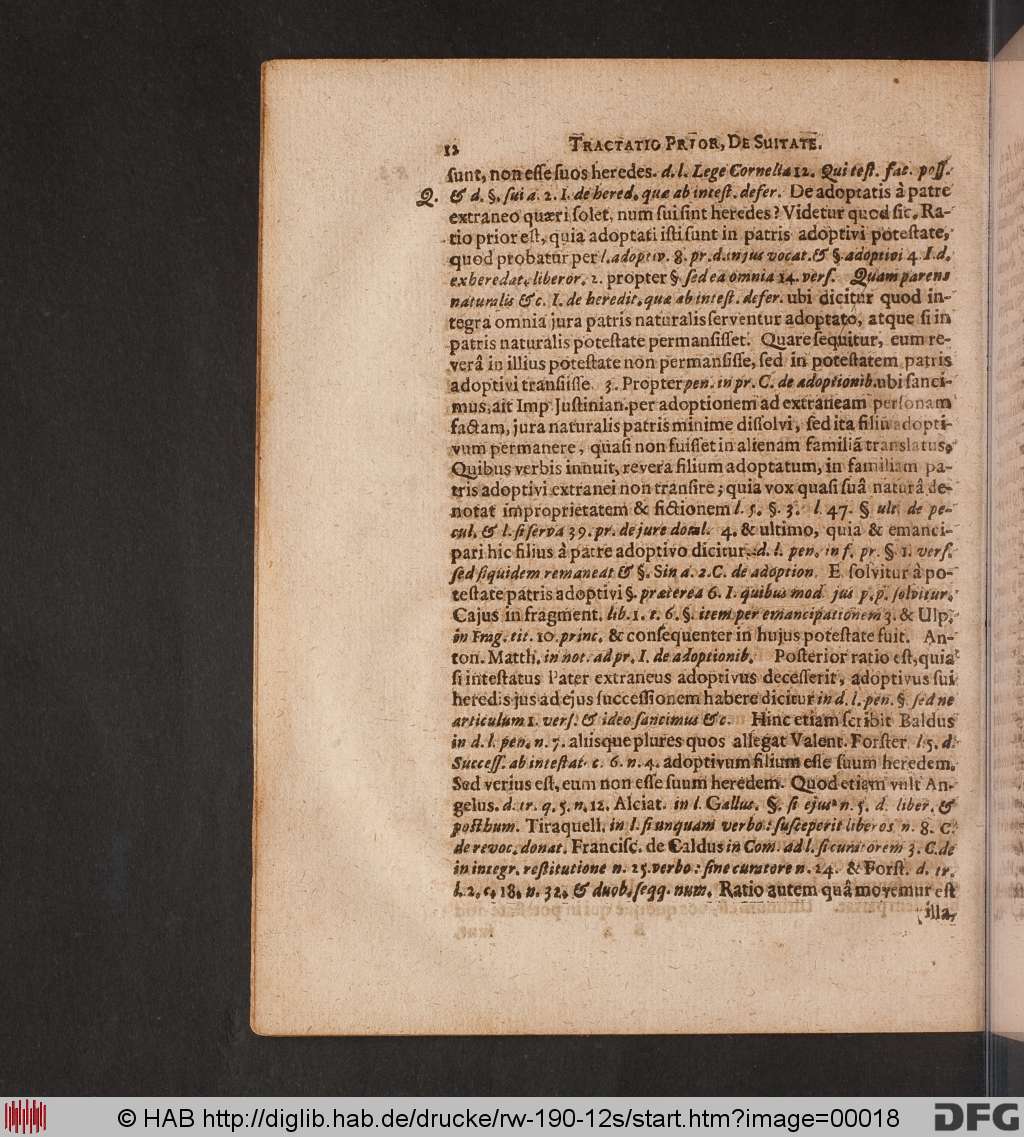 12 TRACTATIO PRIOR, DE SUITATE.
sunt, non esse suos heredes. d. l. Lege Cornelia 12. Qui test. fac. poss.
Q. & d. §. sui a. 2. I. de hered. quæ ab intest. defer. De adoptatis à patre
extraneo quæri solet, num sui sint heredes? Videtur quod sic. Ra-
tio prior est, quia adoptati isti sunt in patris adoptivi potestate,
quod probatur per l. adoptiv. 8. pr. d. in jus vocat. & §. adoptivi 4. I. d.
exheredat. liberor. 2. propter §. sed ea omnia 14. vers. Quam parens
naturalis &c. I. de heredit. quæ ab intest. defer. ubi dicitur quod in-
tegra omnia jura patris naturalis serventur adoptato, atque si in
patris naturalis potestate permansisset. Quare sequitur, eum re-
verâ in illius potestate non permansisse, sed in potestatem patris
adoptivi transiisse. 3. Propter pen. in pr. C. de adoptionib. ubi sanci-
mus, ait Imp Justinian. per adoptionem ad extraneam personam
factam, jura naturalis patris minime dissolvi, sed ita filiu adopti-
vum permanere, quasi non fuisset in alienam familiã translatus.
Quibus verbis innuit, revera filium adoptatum, in familiam pa-
tris adoptivi extranei non transire; quia vox quasi suâ naturâ de-
notat improprietatem & fictionem l. 5. §. 3. l. 47. § ult. de pe-
cul. & l. si serva 39. pr. de jure dotal. 4. & ultimo, quia & emanci-
pari hic filius à patre adoptivo dicitur. d. l. pen. in f. pr. § 1. vers.
sed siquidem remaneat & §. Sin a. 2. C. de adoption. E. solvitur à po-
testate patris adoptivi §. præterea 6. I. quibus mod jus p. p. solvitur.
Cajus in fragment. lib. 1. t. 6. §. item per emancipationem 3. & Ulp.
in Frag. tit. 10. princ. & consequenter in hujus potestate fuit. An-
ton. Matth. in not. ad pr. I. de adoptionib. Posterior ratio est, quia
si intestatus Pater extraneus adoptivus decesserit, adoptivus sui
heredis jus ad ejus successionem habere dicitur in d. l. pen. §. sed ne
articulum 1. vers. & ideo sancimus &c. Hinc etiam scribit Baldus
in d. l. pen. n. 7. aliisque plures quos allegat Valent. Forster. l. 5. d.
Success. ab intestat. c. 6. n. 4. adoptivum filium esse suum heredem.
Sed verius est, eum non esse suum heredem. Quod etiam vult An-
gelus. d. tr. q. 5. n. 12. Alciat. in l. Gallus. §. si ejus n. 5. d. liber. &
posthum. Tiraquell. in l. si unquam verbo: susceperit liberos n. 8. C.
de revoc. donat. Francisc. de Caldus in Com. ad l. si curatorem 3. C. de
in integr. restitutione n. 25. verbo: sine curatore n. 24. & Forst. d. tr.
l. 2. c. 18. n. 32. & duob. seqq. num. Ratio autem quâ movemur est
illa,
© HAB http://diglib.hab.de/drucke/rw-190-12s/start.htm?image=00018 DFG